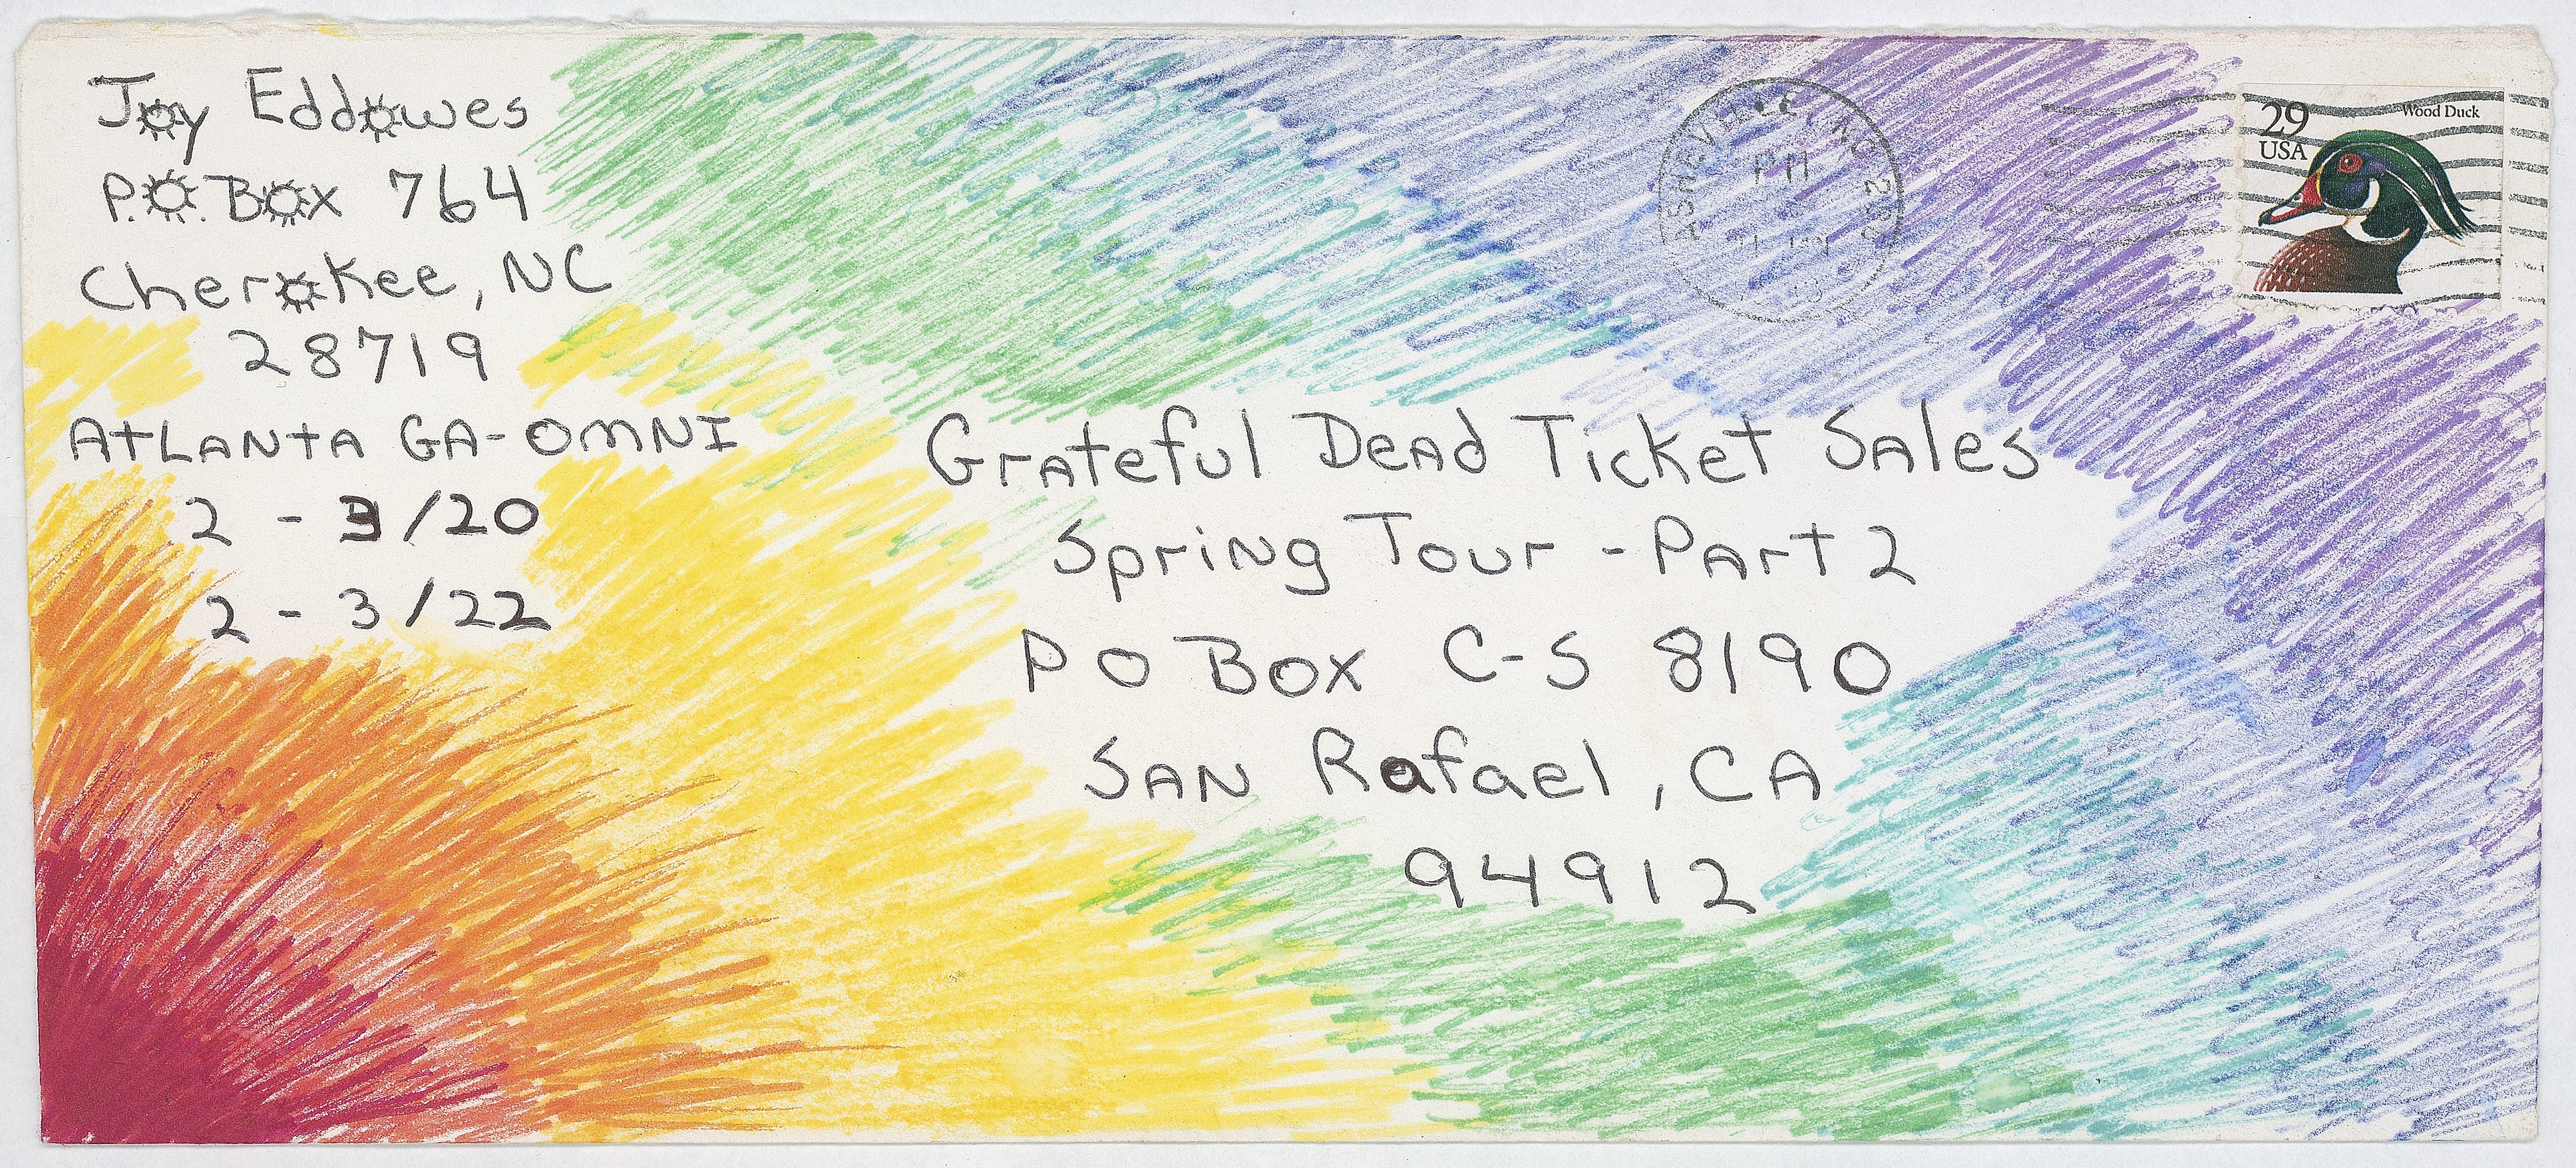 Joy Eddowes
P.O. Box 764
Cherokee, NC
28719
AtLANtA GA-OMNI
2 - 3/20
2 - 3/22
Grateful Dead Ticket Sales
Spring Tour - Part 2
P O Box C-S 8190
SAN Rafael, CA
94912
ASHEVILLE, NC
PM
29
USA
Wood Duck